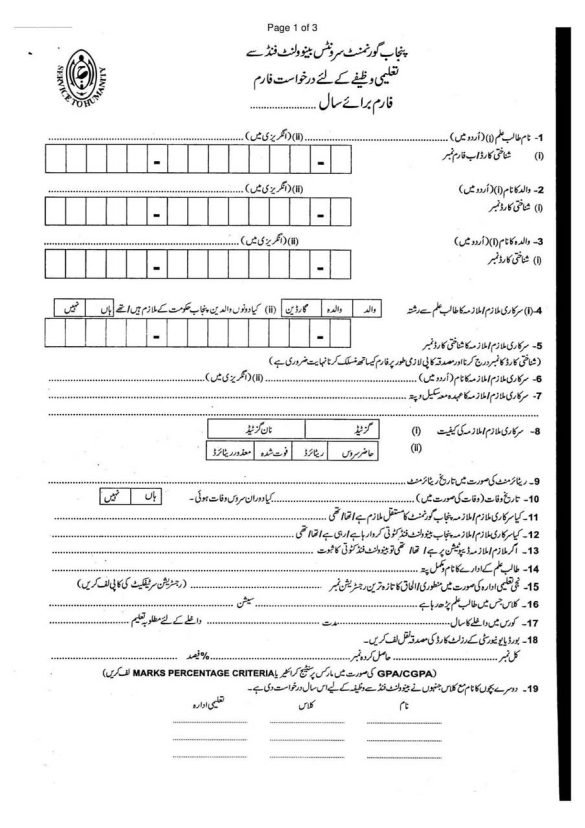 Page 1 of 3
پنجاب گورنمنٹ سرونٹس بینوولنٹ فنڈ سے
تعلیمی وظیفے کے لئے درخواست فارم
فارم برائے سال ....................
SERVICE TO HUMANITY
1- نام طالب علم (i) (اُردو میں) .................... (ii) (انگریزی میں) ....................
(i) شناختی کارڈ/ب فارم نمبر
2- والد کا نام (i) (اُردو میں) (ii) (انگریزی میں) ....................
(i) شناختی کارڈ نمبر
3- والدہ کا نام (i) (اُردو میں) (ii) (انگریزی میں) ....................
(i) شناختی کارڈ نمبر
4-(i) سرکاری ملازم/ملازمہ کا طالب علم سے رشتہ والد والدہ گارڈین (ii) کیا دونوں والدین پنجاب حکومت کے ملازم ہیں/تھے ہاں نہیں
5- سرکاری ملازم/ملازمہ کا شناختی کارڈ نمبر
(شناختی کارڈ کا نمبر درج کرنا اور مصدقہ کاپی لازمی طور پر فارم کیساتھ منسلک کرنا نہایت ضروری ہے)
6- سرکاری ملازم/ملازمہ کا نام (اُردو میں) .................... (ii) (انگریزی میں) ....................
7- سرکاری ملازم/ملازمہ کا عہدہ معہ سکیل و پتہ ....................
8- سرکاری ملازم/ملازمہ کی کیفیت (i) گزٹیڈ نان گزٹیڈ
(ii) حاضر سروس ریٹائرڈ فوت شدہ معذور ریٹائرڈ
9- ریٹائرمنٹ کی صورت میں تاریخ ریٹائرمنٹ ....................
10- تاریخ وفات (وفات کی صورت میں) .................... کیا دوران سروس وفات ہوئی - ہاں نہیں
11- کیا سرکاری ملازم/ملازمہ پنجاب گورنمنٹ کا مستقل ملازم ہے/تھا/تھی ....................
12- کیا سرکاری ملازم/ملازمہ پنجاب بینوولنٹ فنڈ کٹوتی کروا رہا ہے/رہی ہے/تھا/تھی ....................
13- اگر ملازم/ملازمہ ڈیپوٹیشن پر ہے/تھا/تھی تو بینوولنٹ فنڈ کٹوتی کا ثبوت ....................
14- طالب علم کے ادارے کا نام و مکمل پتہ ....................
15- نجی تعلیمی ادارہ کی صورت میں منظوری/الحاق کا تازہ ترین رجسٹریشن نمبر .................... (رجسٹریشن سرٹیفکیٹ کی کاپی لف کریں)
16- کلاس جس میں طالب علم پڑھ رہا ہے .................... سیشن ....................
17- کورس میں داخلے کا سال .................... مدت .................... داخلے کے لئے مطلوبہ تعلیم ....................
18- بورڈ یا یونیورسٹی کے رزلٹ کارڈ کی مصدقہ نقل لف کریں۔
کل نمبر .................... حاصل کردہ نمبر .................... %فیصد ....................
(GPA/CGPA کی صورت میں مارکس پرسنٹیج کرائٹیریا MARKS PERCENTAGE CRITERIA لف کریں)
19- دوسرے بچوں کا نام مع کلاس جنہوں نے بینوولنٹ فنڈ سے وظیفہ کے لیے اس سال درخواست دی ہے۔
نام کلاس تعلیمی ادارہ
.................... .................... ....................
.................... .................... ....................
.................... .................... ....................